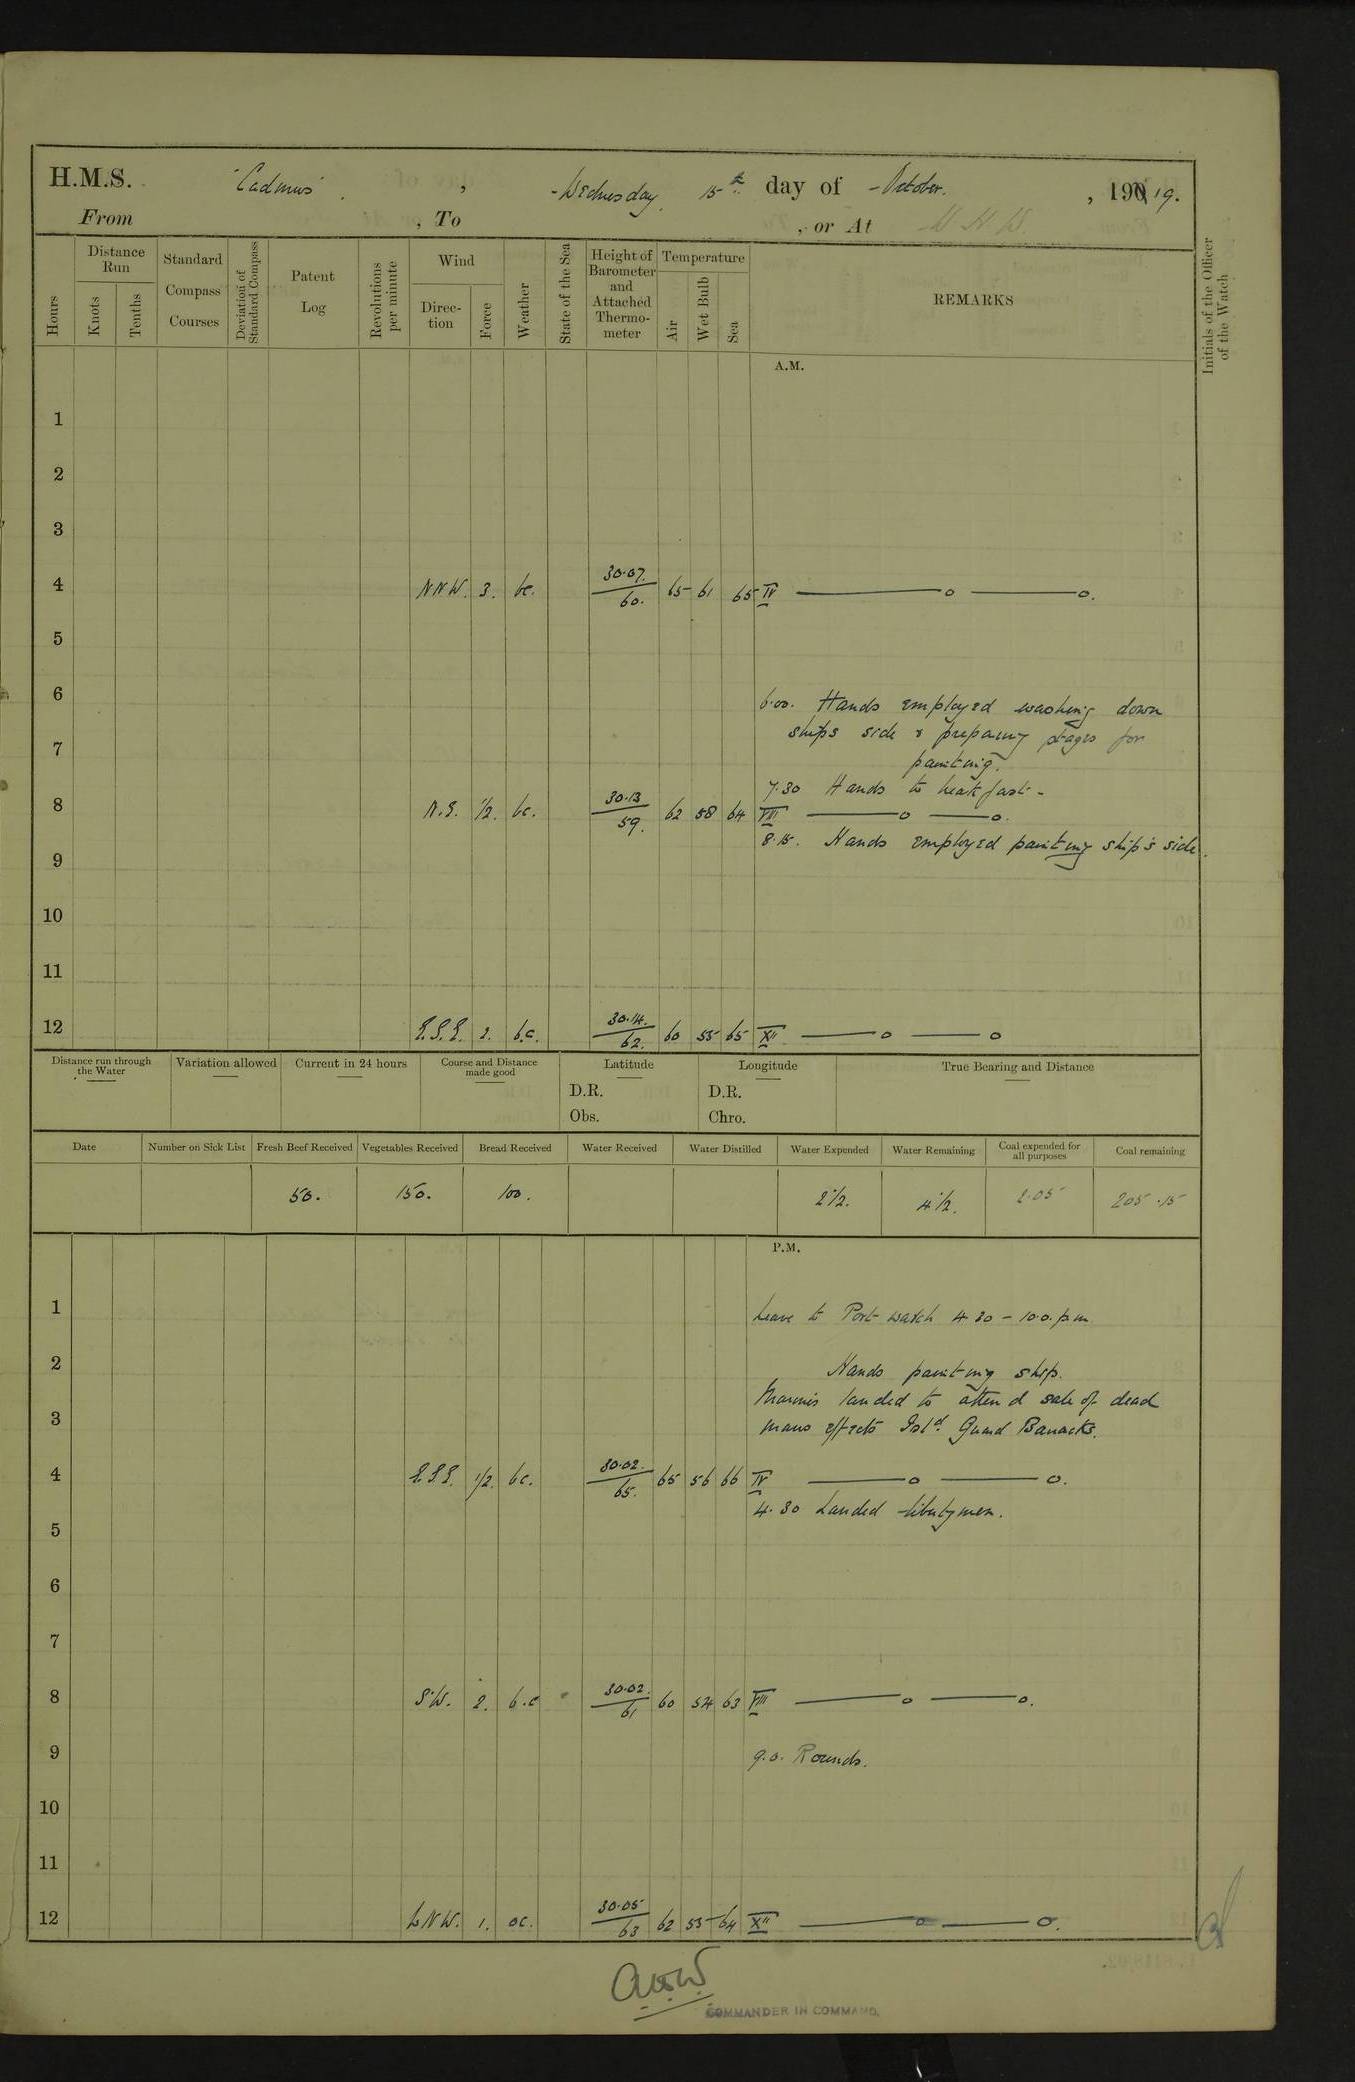 H.M.S. "Cadmus" , Wednesday 15th day of October. , 19019.
From , To , or At
Hours
Distance Run
Knots
Tenths
Standard Compass Courses
Deviation of Standard Compass
Patent Log
Revolutions per minute
Wind
Direction
Force
Weather
State of the Sea
Height of Barometer and Attached Thermometer
Temperature
Air
Wet Bulb
Sea
REMARKS
Initials of the Officer of the Watch
A.M.
1
2
3
4 NNW. 3. bc. 30.07. 60. 65 61 65 IV
5
6
6.00. Hands employed washing down
ships side & preparing stages for
7
painting.
7.30 Hands to breakfast
8 N.E. 1/2. bc. 30.13 59. 62 58 64 VIII
8.15. Hands employed painting ship's side.
9
10
11
12 E.S.E. 2. b.c. 30.14. 62. 60 55 65 XII
Distance run through the Water
Variation allowed
Current in 24 hours
Course and Distance made good
Latitude
D.R.
Obs.
Longitude
D.R.
Chro.
True Bearing and Distance
Date Number on Sick List Fresh Beef Received Vegetables Received Bread Received Water Received Water Distilled Water Expended Water Remaining Coal expended for all purposes Coal remaining
50. 150. 100. 2 1/2. 4 1/2. 2.05 205.15
P.M.
1 Leave to Port watch 4.30 - 10.0. p.m.
2 Hands painting ship.
Marines landed to attend sale of dead
3 mans effects Isld. Guard Barracks.
4 E.S.E. 1/2. bc. 30.02. 65. 65 56 66 IV
4.30 Landed libertymen.
5
6
7
8 S.W. 2. b.c 30.02. 61 60 54 63 VIII
9 9.0. Rounds.
10
11
12 WNW. 1. oc. 30.05 63 62 55 64 XII
COMMANDER IN COMMAND.